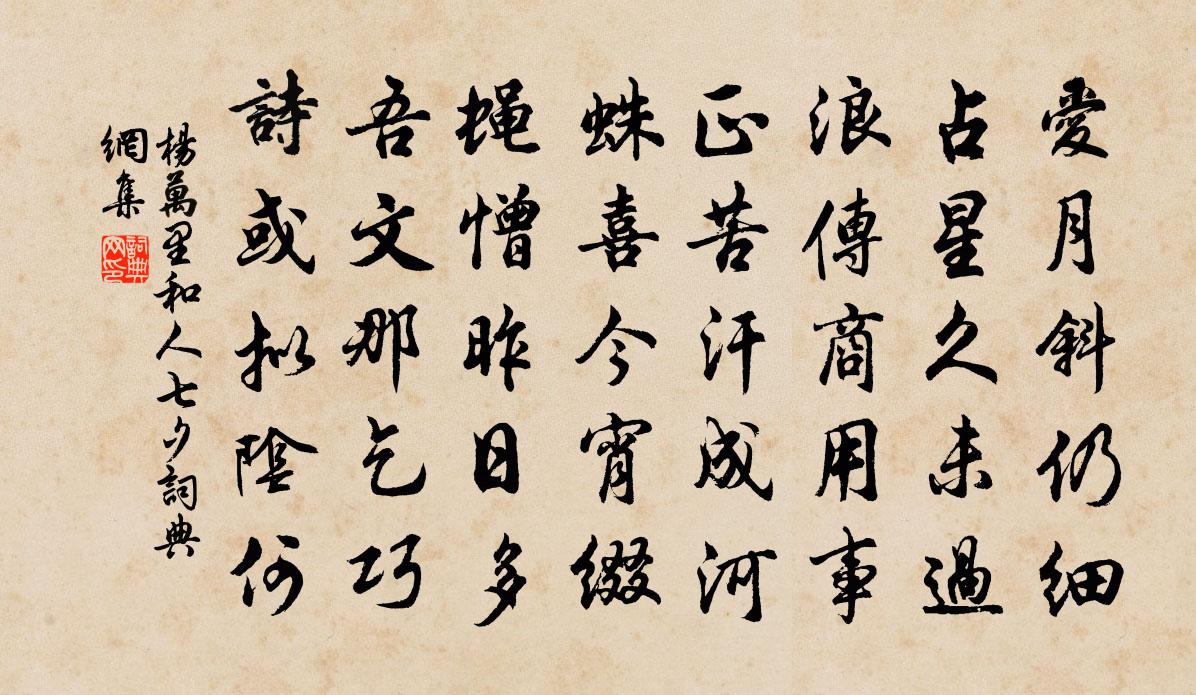 愛月斜仍細
占星久未過
浪傳商用事
正苦汗成河
蛛喜今宵綴
蝇憎昨日多
吾文那乞巧
詩或拟陰何
楊萬里和人七夕詞典
網集
詞典
网印